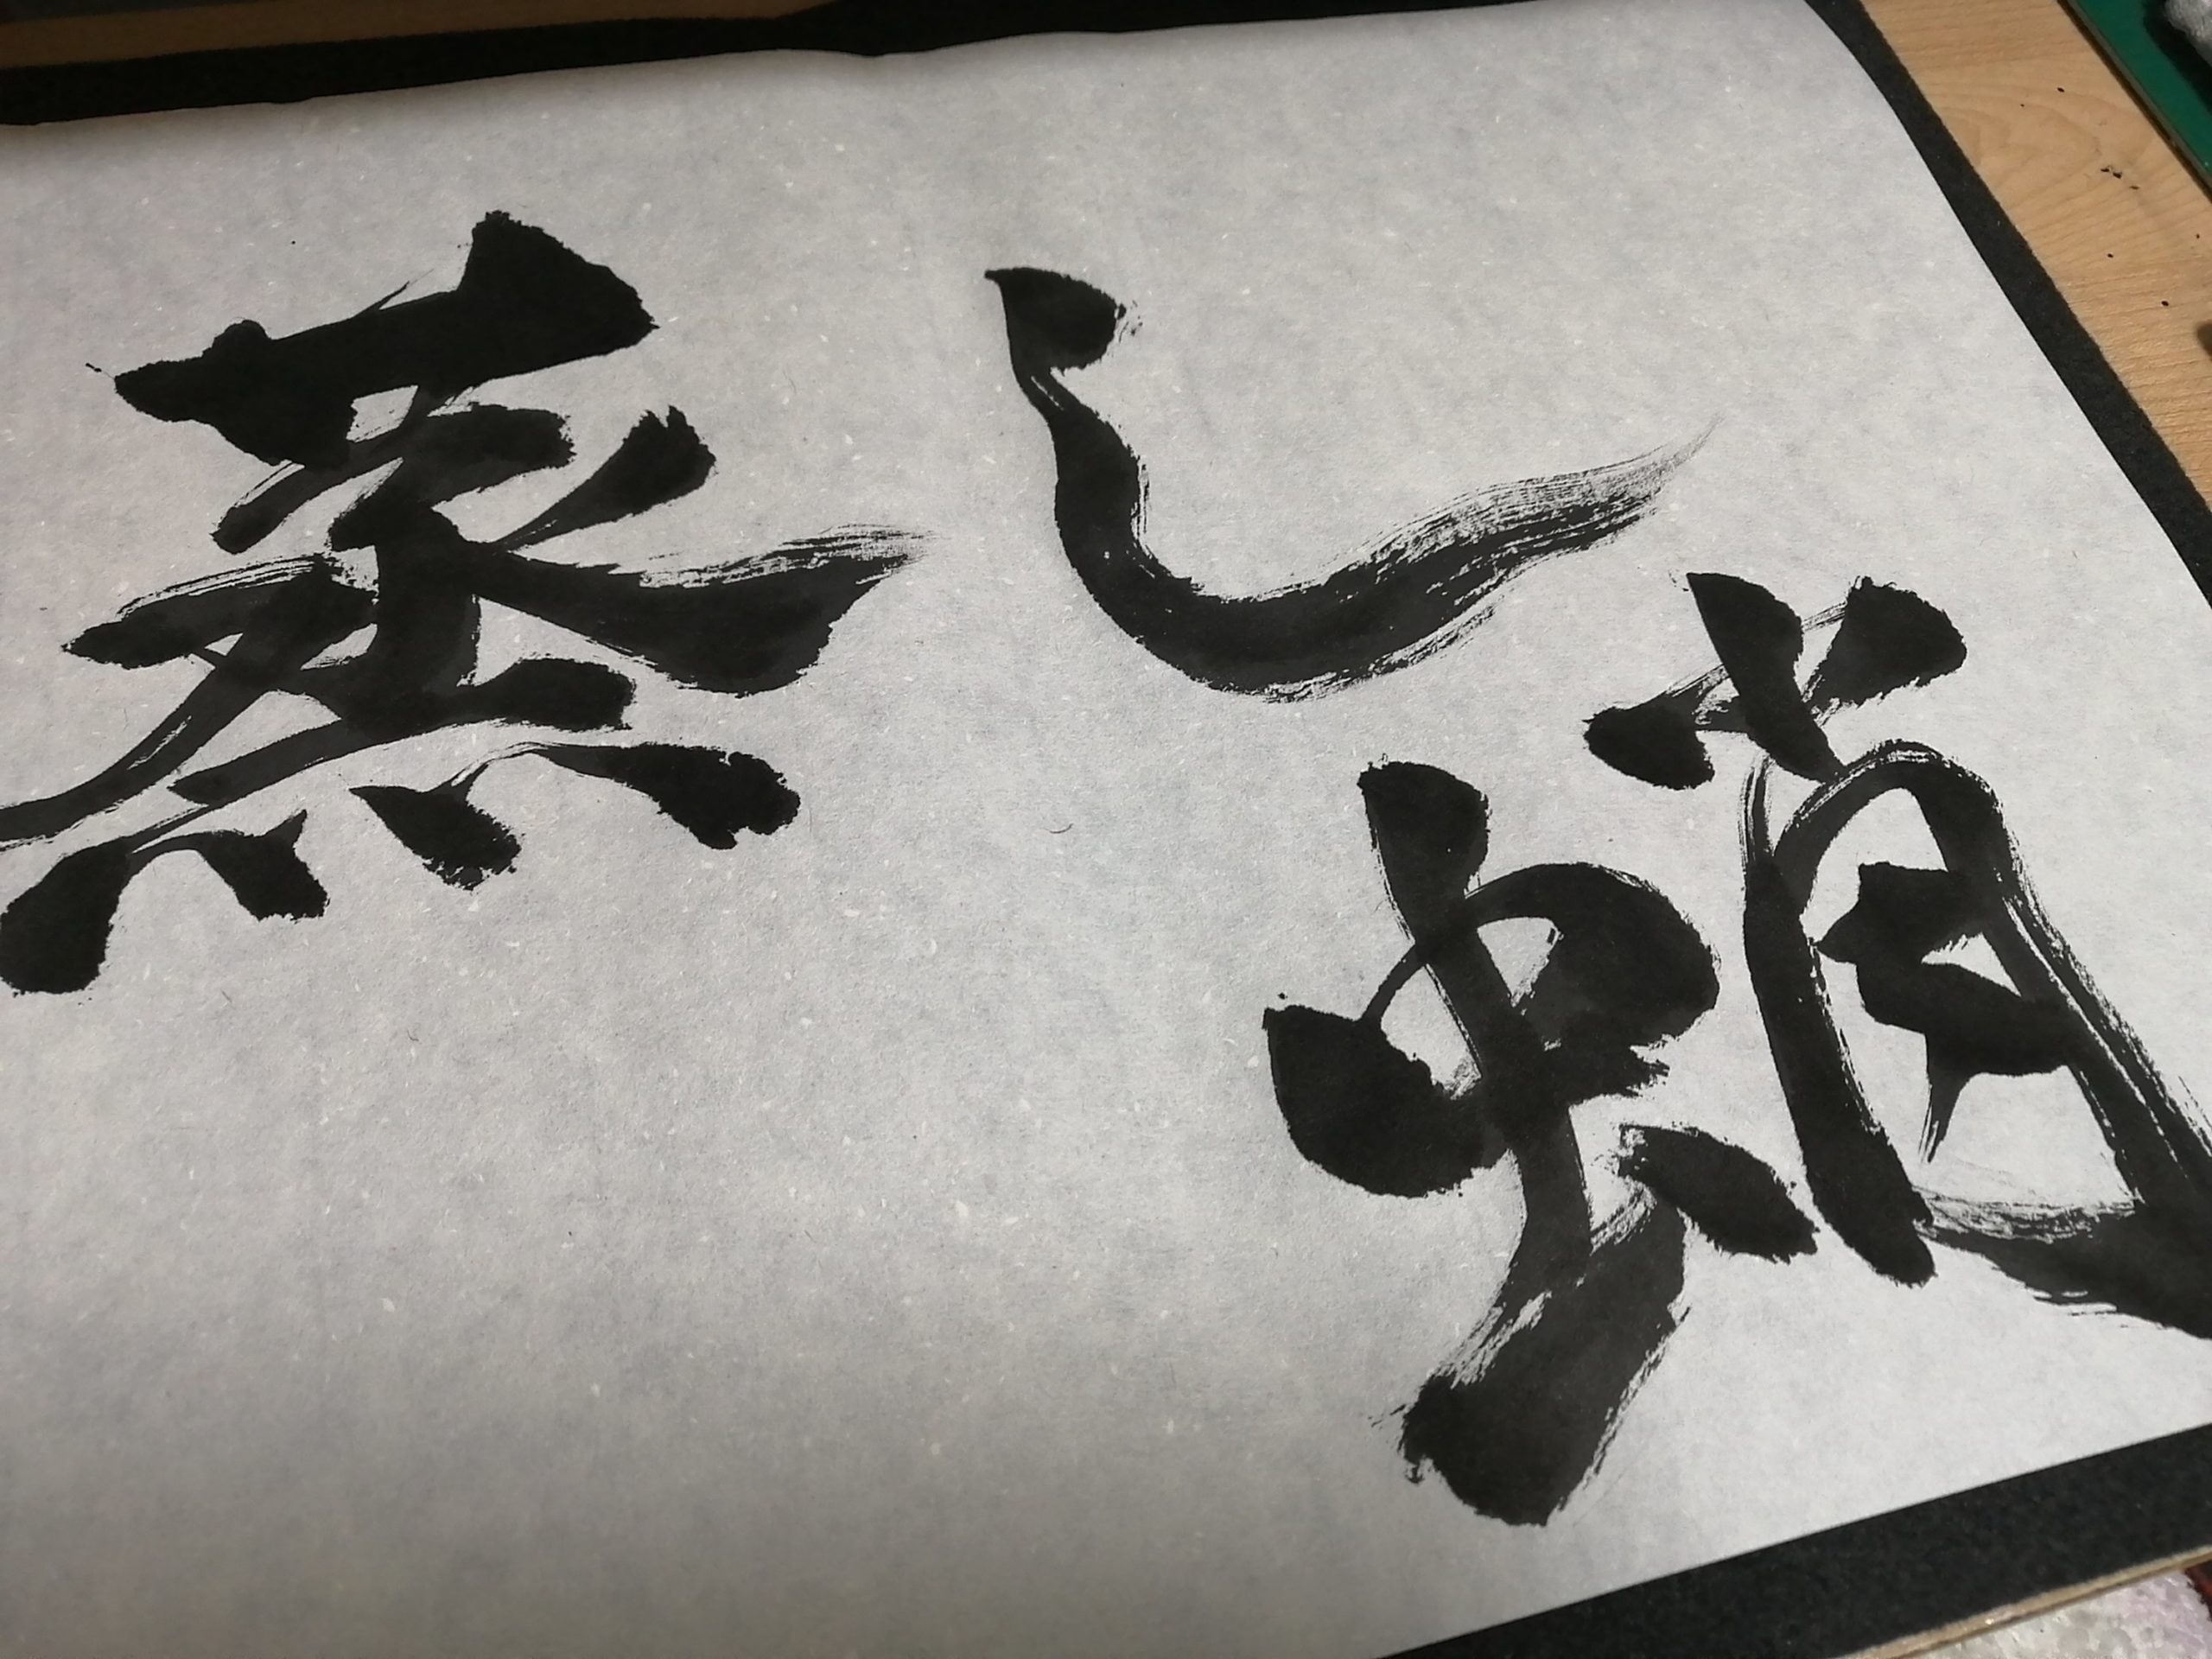 蒸し蛸